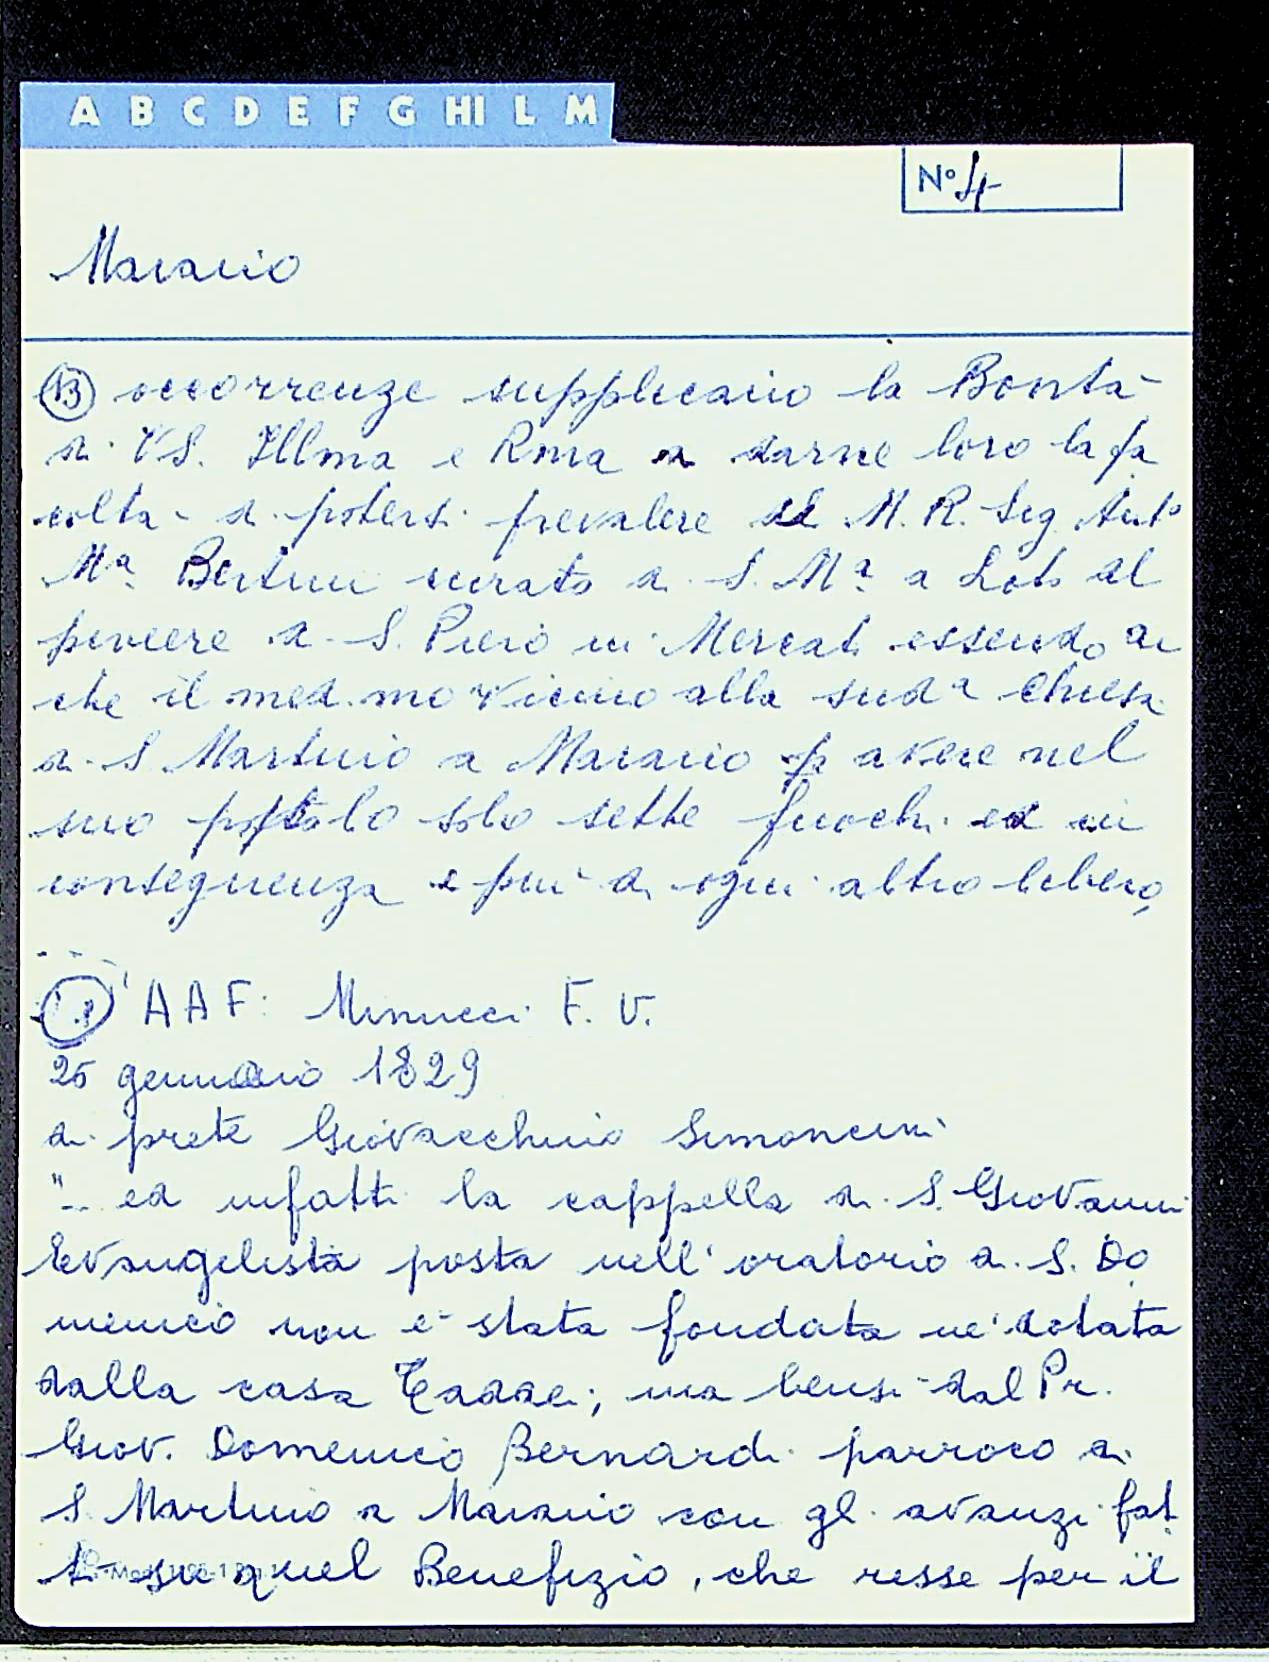 A B C D E F G HI L M
N° 4
Marano
(13) occorrenze supplicano la Bontà
di VS. Illma e Rma a darne loro la fa
coltà di potersi prevalere del M. R. Sig. Anto
Mª Bertini curato di S. Mª a Loto al
piviere di S. Piero in Mercato essendo an
che il med.mo vicino alla sudª Chiesa
di S Martino a Marano p avere nel
suo popolo solo sette fuochi ed in
conseguenza è più di ogni altro libero,
AAF: Minucci F. V.
25 gennaio 1829
di prete Giovacchino Simoncini
"... ed infatti la cappella di S. Giovanni
Evangelista posta nell'oratorio di S. Do
menico non è stata fondata ne' dotata
dalla casa Taddei; ma bensì dal Pr.
Giov. Domenico Bernardi parroco di
S. Martino a Marano con gl. avanzi fat
ti su quel Benefizio, che resse per il